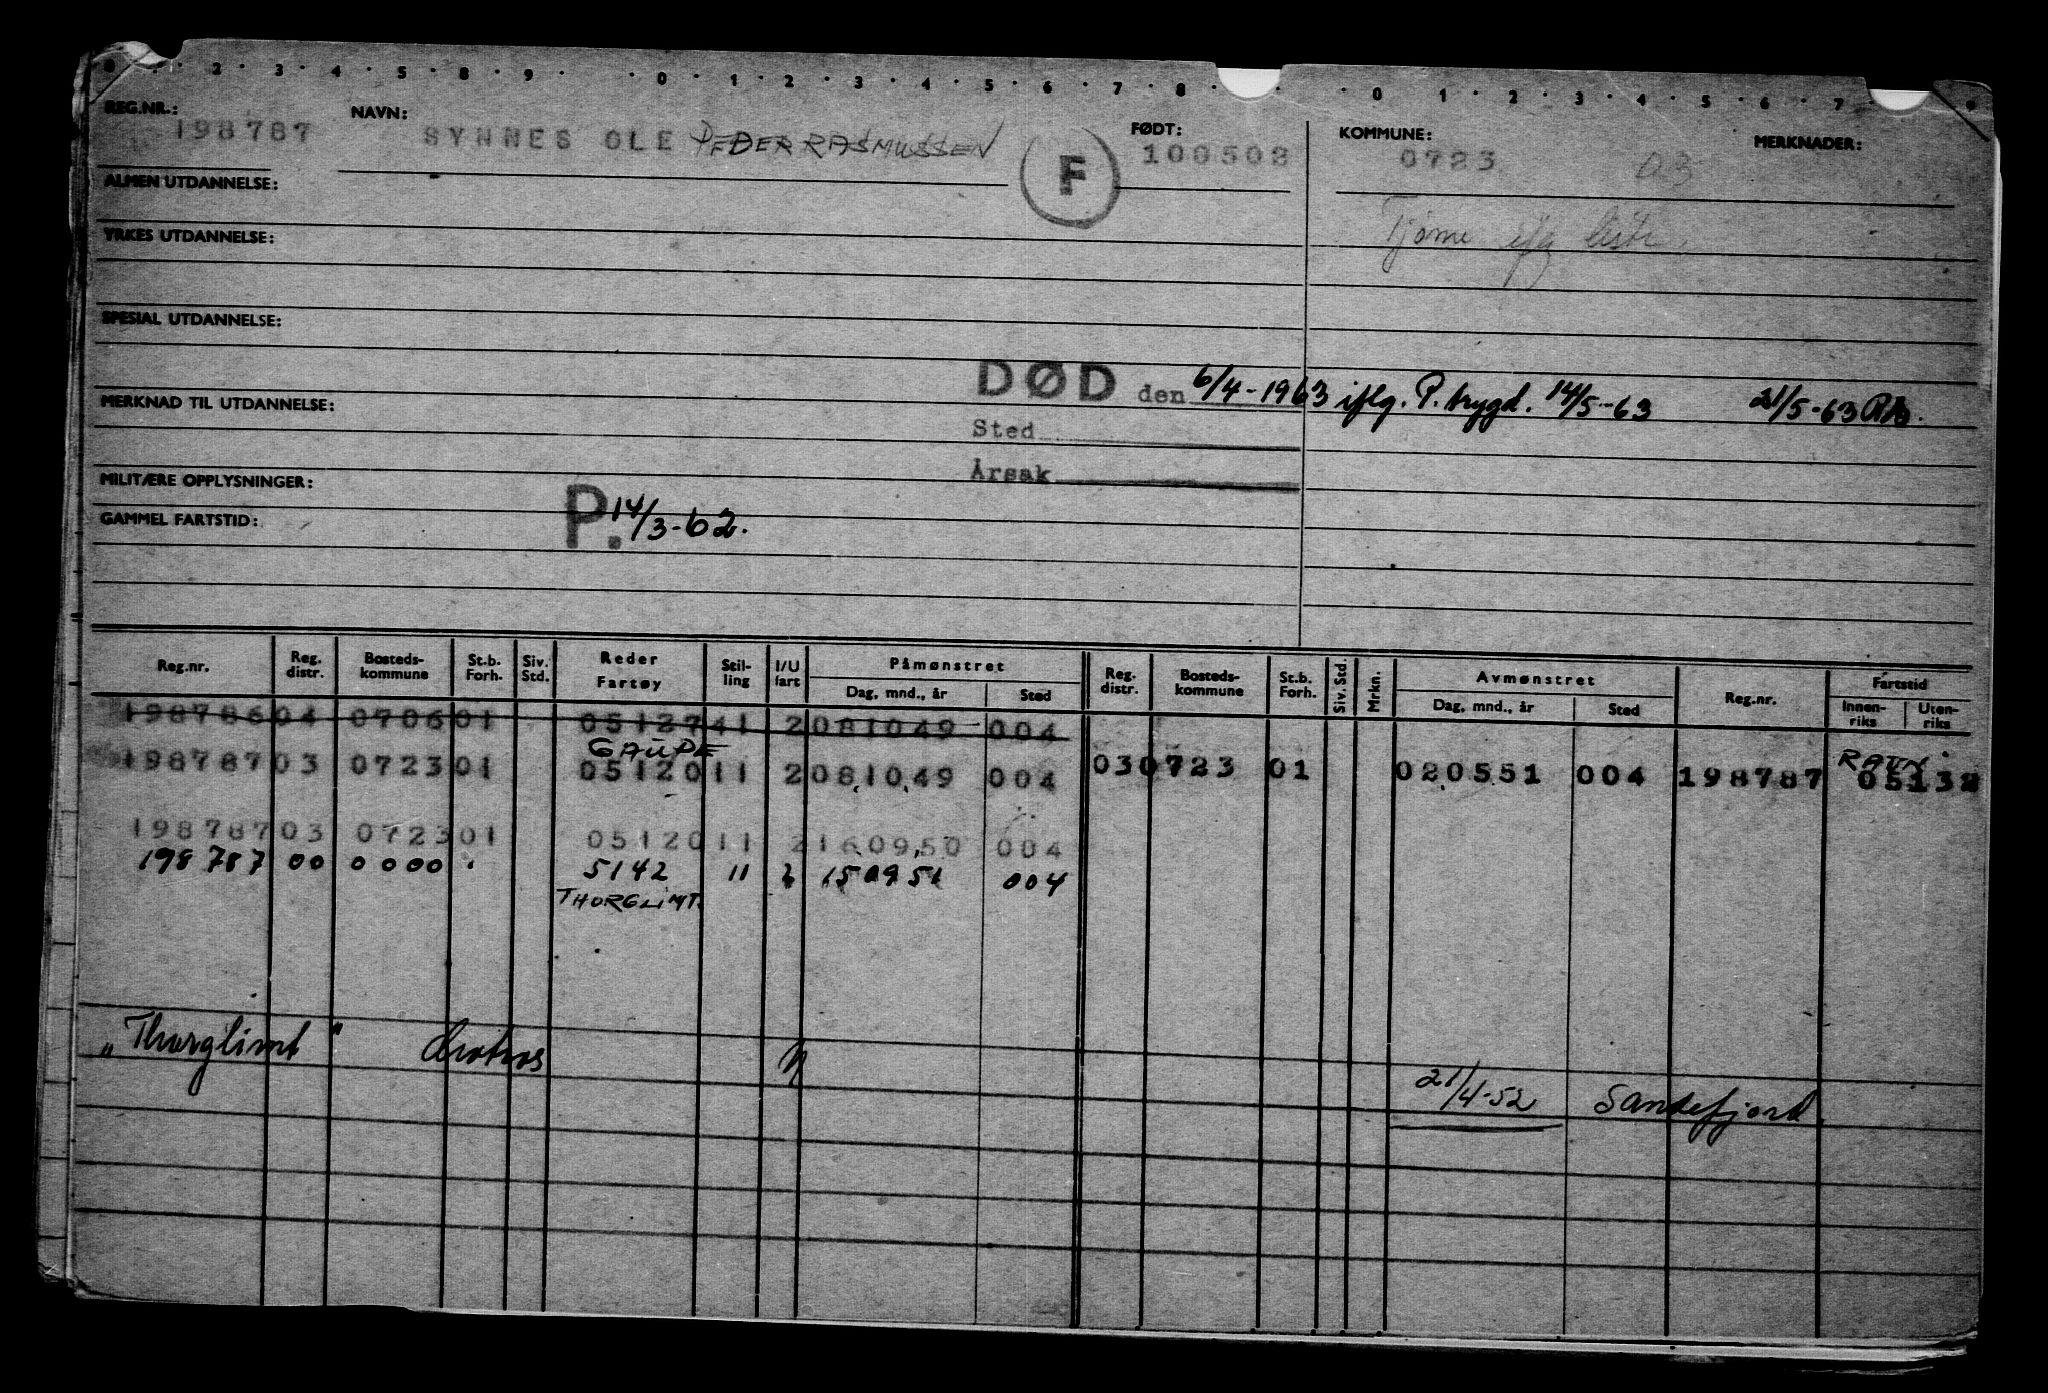 0 . 2 . 3 . 4 . 5 . 8 . 9 . . 0 . 1 . 2 . 3 . 4 . 5 . 6 . 7 . 8 . . 0 . 1 . 2 . 3 . 4 . 5 . 6 . 7 . 9
REG.NR.: 198787 NAVN: SYNNES OLE PEDER RASMUSSEN F FØDT: 100502 KOMMUNE: 0723 03 MERKNADER:
ALMEN UTDANNELSE:
Tjøme iflg liste.
YRKES UTDANNELSE:
SPESIAL UTDANNELSE:
DØD den 6/4-1963 iflg. P. trygd. 14/5-63 21/5-63
MERKNAD TIL UTDANNELSE:
Sted
Årsak
MILITÆRE OPPLYSNINGER:
P. 14/3-62.
GAMMEL FARTSTID:
Reg.nr. Reg. distr. Bosteds-kommune St.b. Forh. Siv. Std. Reder Fartøy Stil-ling I/U fart Påmønstret Dag, mnd., år Sted Reg. distr. Bosteds-kommune St.b. Forh. Siv. Std. Mrkn. Avmønstret Dag, mnd., år Sted Reg.nr. Fartstid Innen-riks Uten-riks
198786 04 0706 01 05127 41 2 081049 004
GAUPE RAUX
198787 03 0723 01 05120 11 2 081049 004 03 0723 01 020551 004 198787 05132
198787 03 0723 01 05120 11 2 160950 004
198787 00 0000 5142 11 2 150951 004
THORGLIMT.
„Thorglimt" 21/4-52 Sandefjord.